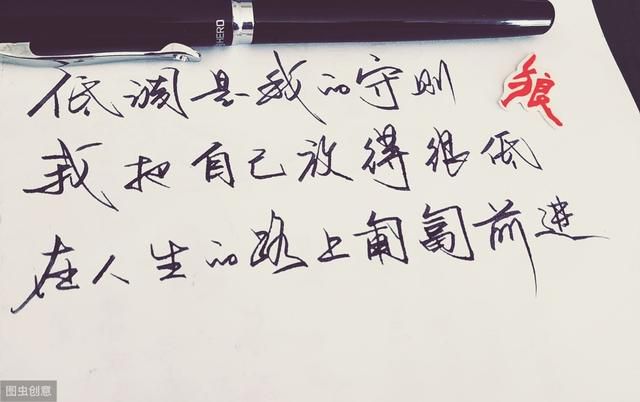 HERO
低调是我的守则
狼
我把自己放得很低
在人生的路上匍匐前进
图虫创意